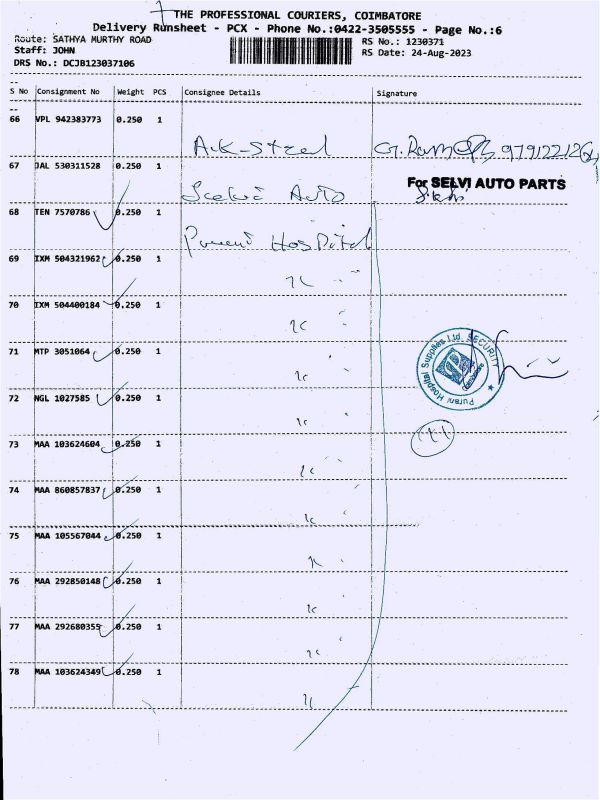 THE PROFESSIONAL COURIERS, COIMBATORE
Delivery Runsheet - PCX - Phone No.:0422-3505555 - Page No.:6
Route: SATHYA MURTHY ROAD
RS No.: 1230371
Staff: JOHN
RS Date: 24-Aug-2023
DRS No.: DCJB123037106
S No Consignment No Weight PCS Consignee Details Signature
66 VPL 942383773 0.250 1
A.K-Steel
67 JAL 530311528 0.250 1
For SELVI AUTO PARTS
Auto
68 TEN 7570786 0.250 1
Hospital
69 IXM 504321962 0.250 1
70 IXM 504400184 0.250 1
71 MTP 3051064 0.250 1
Purani Hospital Supplies Ltd. SECURITY
72 NGL 1027585 0.250 1
73 MAA 103624604 0.250 1
(11)
74 MAA 860857837 0.250 1
75 MAA 105567044 0.250 1
76 MAA 292850148 0.250 1
77 MAA 292680355 0.250 1
78 MAA 103624349 0.250 1